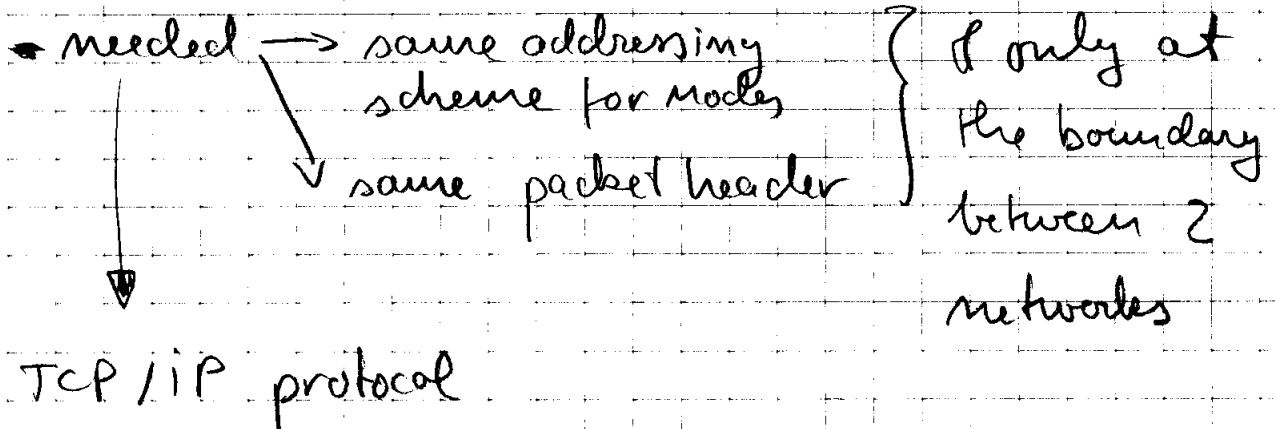 - needed → same addressing
scheme for nodes
same packet header
only at
the boundary
between 2
networks
TCP/iP protocol